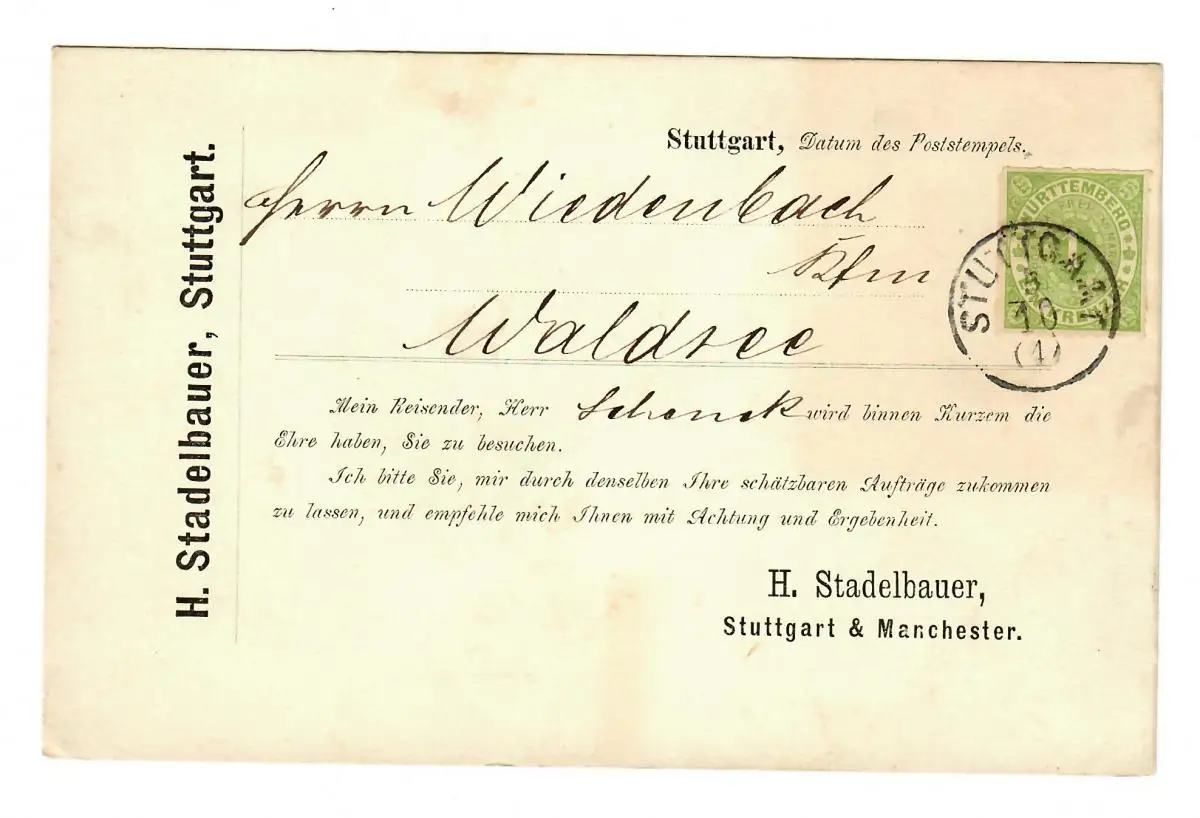 H. Stadelbauer, Stuttgart.
Stuttgart, Datum des Poststempels.
Herrn Wiedenbach
Kfm
Waldsee
WÜRTTEMBERG
FREI
1
STUTTGART
10
(4)
Mein Reisender, Herr Schenck wird binnen Kurzem die
Ehre haben, Sie zu besuchen.
Ich bitte Sie, mir durch denselben Ihre schätzbaren Aufträge zukommen
zu lassen, und empfehle mich Ihnen mit Achtung und Ergebenheit.
H. Stadelbauer,
Stuttgart & Manchester.